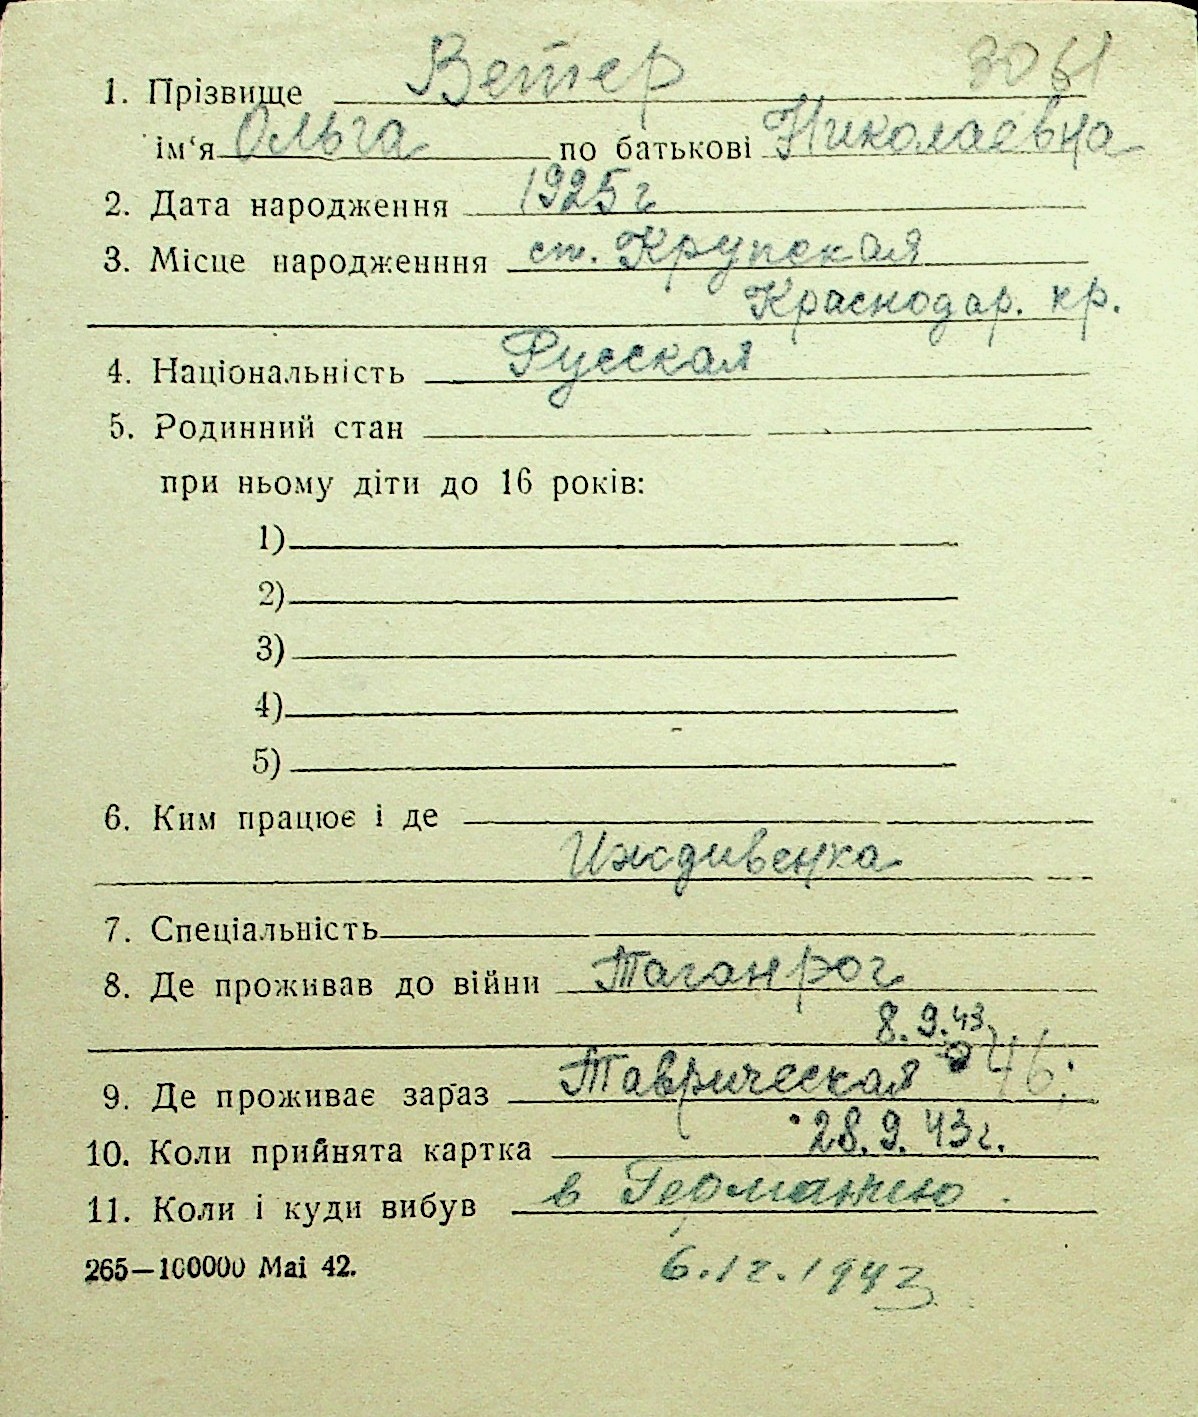 1. Прізвище Ветер 3061
ім‘я Ольга по батькові Николаевна
2. Дата народження 1925 г
3. Місце народженння ст. Крупская
Краснодар. кр.
4. Національність Русская
5. Родинний стан
при ньому діти до 16 років:
1)
2)
3)
4)
5)
6. Ким працює і де
Иждивенка
7. Спеціальність
8. Де проживав до війни Таганрог
8.9.43
9. Де проживає зараз Таврическая 46
10. Коли прийнята картка 28.9.43г.
11. Коли і куди вибув в Германию.
265—100000 Mai 42. 6.12.1943